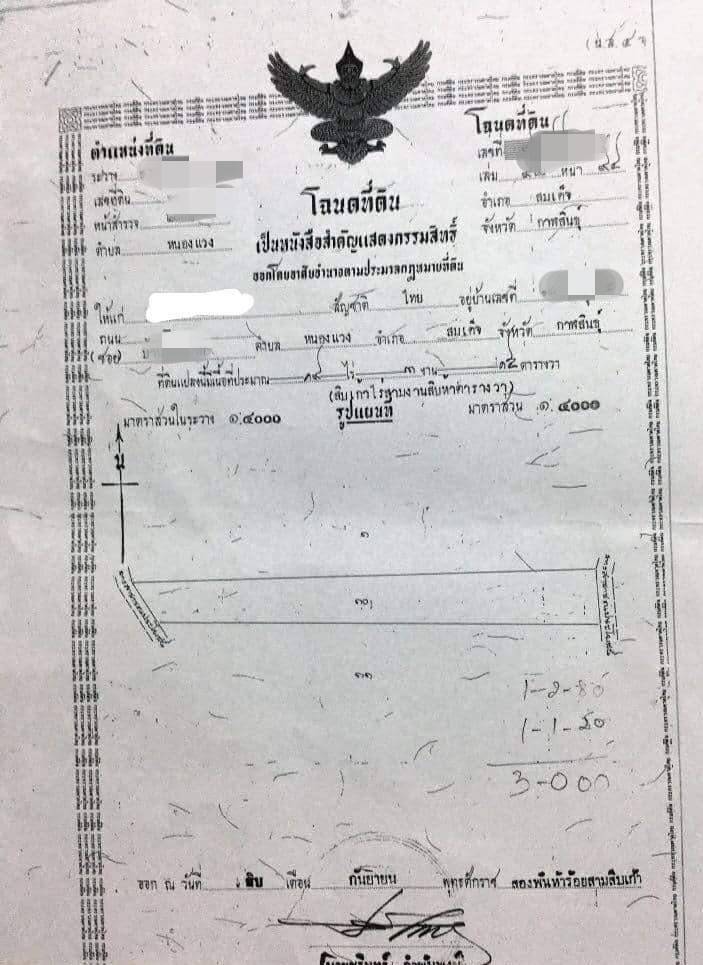 (น.ส.๔ จ)
ตำแหน่งที่ดิน
ระวาง
เลขที่ดิน
หน้าสำรวจ
ตำบล หนองแวง
โฉนดที่ดิน
เลขที่
เล่ม หน้า
อำเภอ สมเด็จ
จังหวัด กาฬสินธุ์
โฉนดที่ดิน
เป็นหนังสือสำคัญแสดงกรรมสิทธิ์
ออกโดยอาศัยอำนาจตามประมวลกฎหมายที่ดิน
ให้แก่ สัญชาติ ไทย อยู่บ้านเลขที่
ถนน ตำบล หนองแวง อำเภอ สมเด็จ จังหวัด กาฬสินธุ์
(ซอย)
ที่ดินแปลงนี้มีเนื้อที่ประมาณ ๑๙ ไร่ ๓ งาน ๑๕ ตารางวา
(สิบเก้าไร่สามงานสิบห้าตารางวา)
มาตราส่วนในระวาง ๑:๔๐๐๐ รูปแผนที่ มาตราส่วน ๑:๔๐๐๐
น
๑
๑๐
๑๑
ทางสาธารณประโยชน์
ทางสาธารณประโยชน์
1-2-80
1-1-20
3-0 00
ออก ณ วันที่ สิบ เดือน กันยายน พุทธศักราช สองพันห้าร้อยสามสิบเก้า